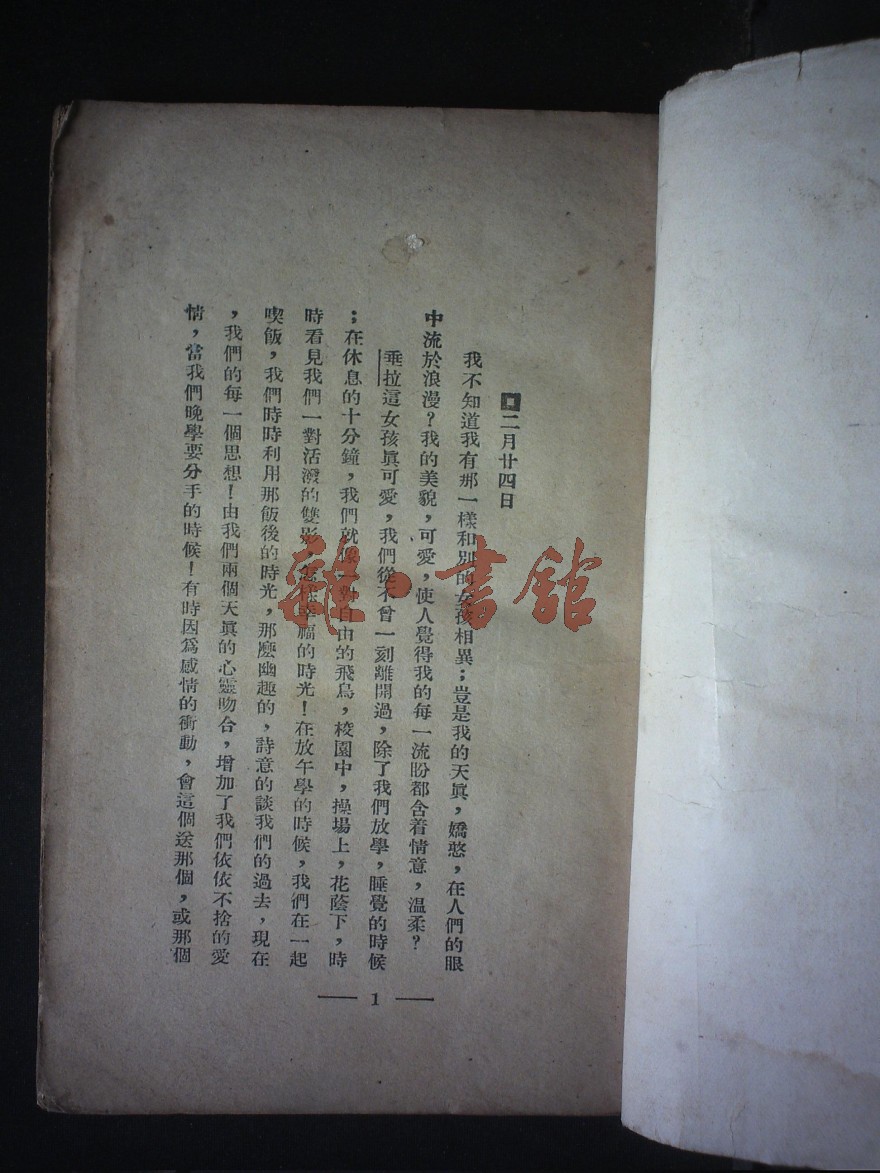 二月廿四日
我不知道我有那一樣和別的女孩相異；豈是我的天眞，嬌憨，在人們的眼
中流於浪漫？我的美貌，可愛，使人覺得我的每一流盼都含着情意，温柔？
垂拉這女孩眞可愛，我們從不曾一刻離開過，除了我們放學，睡覺的時候
；在休息的十分鐘，我們就像一對自由的飛鳥，校園中，操場上，花蔭下，時
時看見我們一對活潑的雙影，幸福的時光！在放午學的時候，我們在一起
喫飯，我們時時利用那飯後的時光，那麽幽趣的，詩意的談我們的過去，現在
，我們的每一個思想！由我們兩個天眞的心靈吻合，增加了我們依依不捨的愛
情，當我們晚學要分手的時候！有時因爲感情的衝動，會這個送那個，或那個
— 1 —
雜·書館